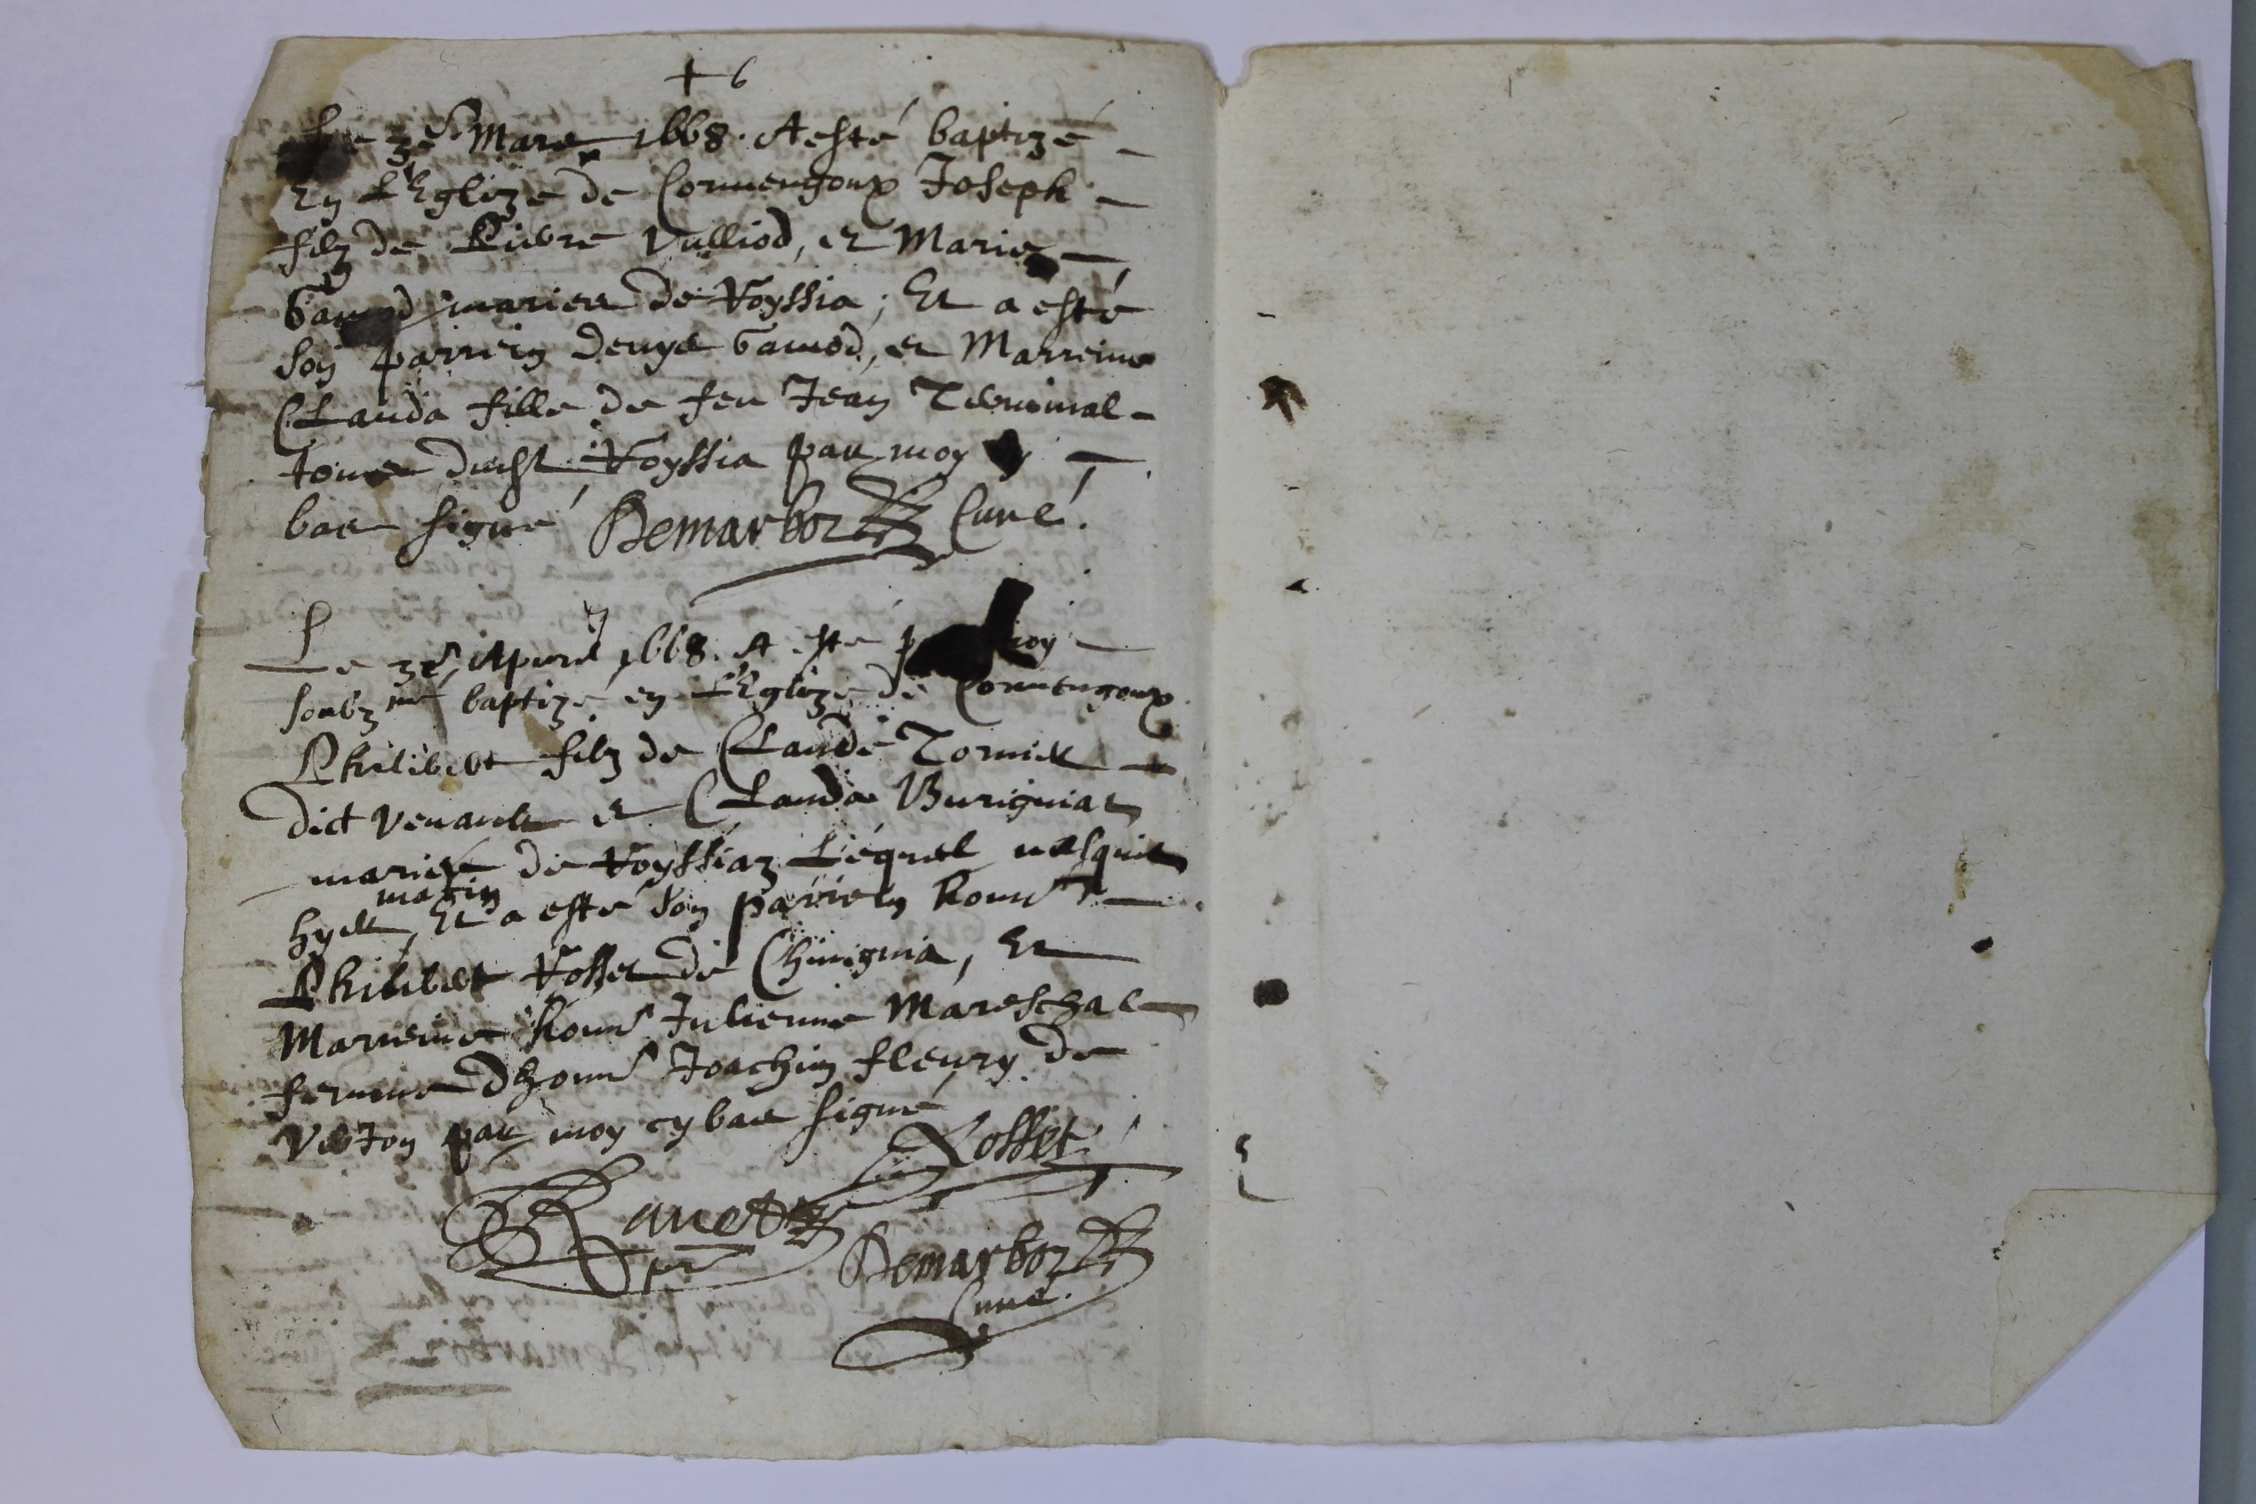 + 6
Le 3e Mars 1668. A esté baptizé
En L'Eglize de Cormengoux Joseph
filz de Pierre Vulliod, et Marie
Gamod mariez de Rossia; Et a esté
Son parrein denys Gamod, et Marreine
Clauda fille de feu Jean
dudit Royssia par moy
bas signé Demarboz Curé.
7
Le 3e Apvril 1668. A esté moy
soubzné baptizé en L'Eglize de Cormengoux
Philibert filz de Claude Tornier
dict Venault et Clauda Burigniat
mariez de Royssiaz Lequel nasquit
matin
hyer, Et a esté Son parrein honn
Philibert Rosset de Chinignia, Et
Marreine honn Julienne Mareschal
femme dhonn Joachin fleury de
Verjon par moy cy bas signé
Rosset
Ravet
Demarboz
Curé.